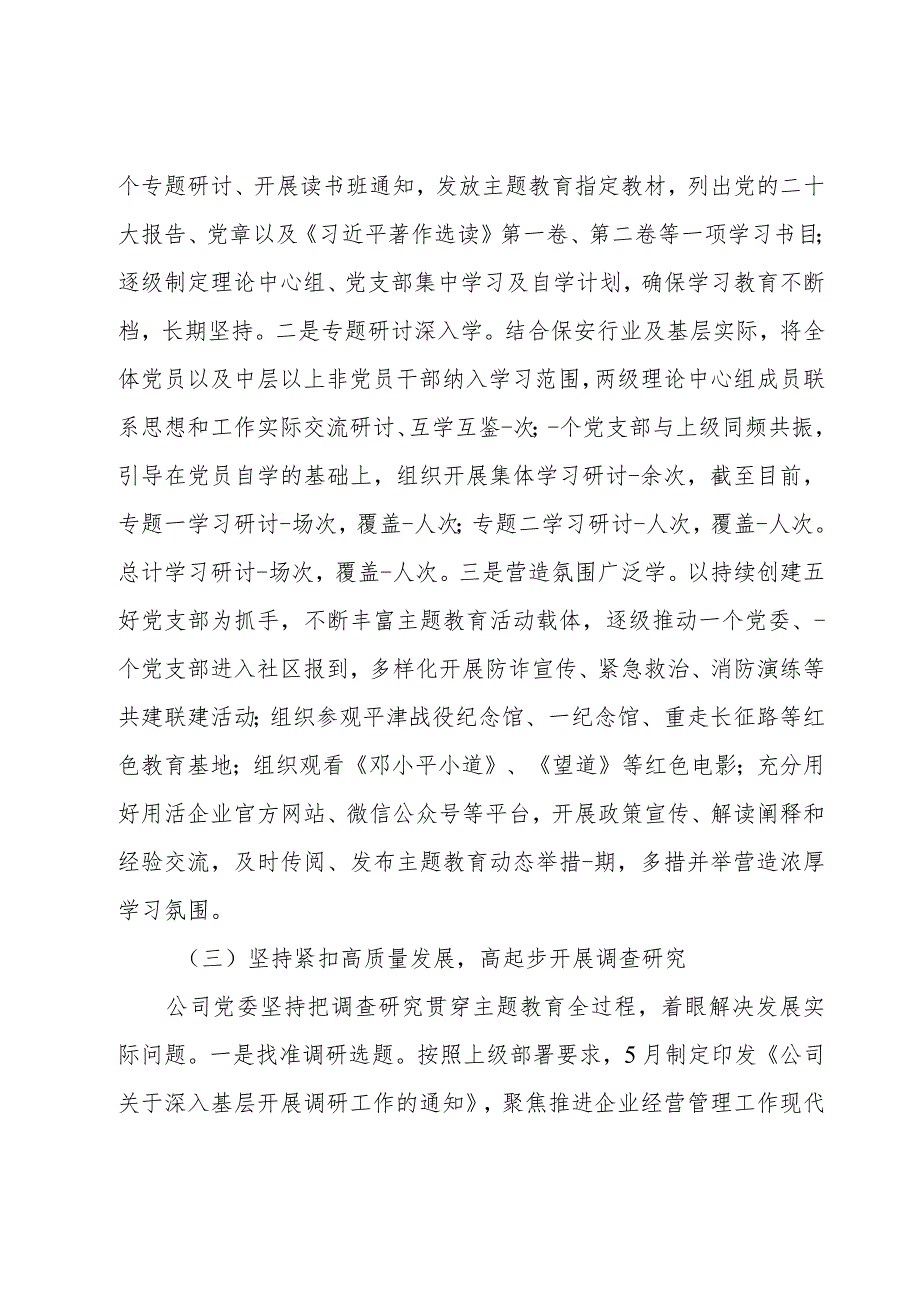 个专题研讨、开展读书班通知，发放主题教育指定教材，列出党的二十
大报告、党章以及《习近平著作选读》第一卷、第二卷等一项学习书目；
逐级制定理论中心组、党支部集中学习及自学计划，确保学习教育不断
档，长期坚持。二是专题研讨深入学。结合保安行业及基层实际，将全
体党员以及中层以上非党员干部纳入学习范围，两级理论中心组成员联
系思想和工作实际交流研讨、互学互鉴-次；-个党支部与上级同频共振，
引导在党员自学的基础上，组织开展集体学习研讨-余次，截至目前，
专题一学习研讨-场次，覆盖-人次；专题二学习研讨-人次，覆盖-人次。
总计学习研讨-场次，覆盖-人次。三是营造氛围广泛学。以持续创建五
好党支部为抓手，不断丰富主题教育活动载体，逐级推动一个党委、-
个党支部进入社区报到，多样化开展防诈宣传、紧急救治、消防演练等
共建联建活动；组织参观平津战役纪念馆、一纪念馆、重走长征路等红
色教育基地；组织观看《邓小平小道》、《望道》等红色电影；充分用
好用活企业官方网站、微信公众号等平台，开展政策宣传、解读阐释和
经验交流，及时传阅、发布主题教育动态举措-期，多措并举营造浓厚
学习氛围。
（三）坚持紧扣高质量发展，高起步开展调查研究
公司党委坚持把调查研究贯穿主题教育全过程，着眼解决发展实
际问题。一是找准调研选题。按照上级部署要求，5月制定印发《公司
关于深入基层开展调研工作的通知》，聚焦推进企业经营管理工作现代